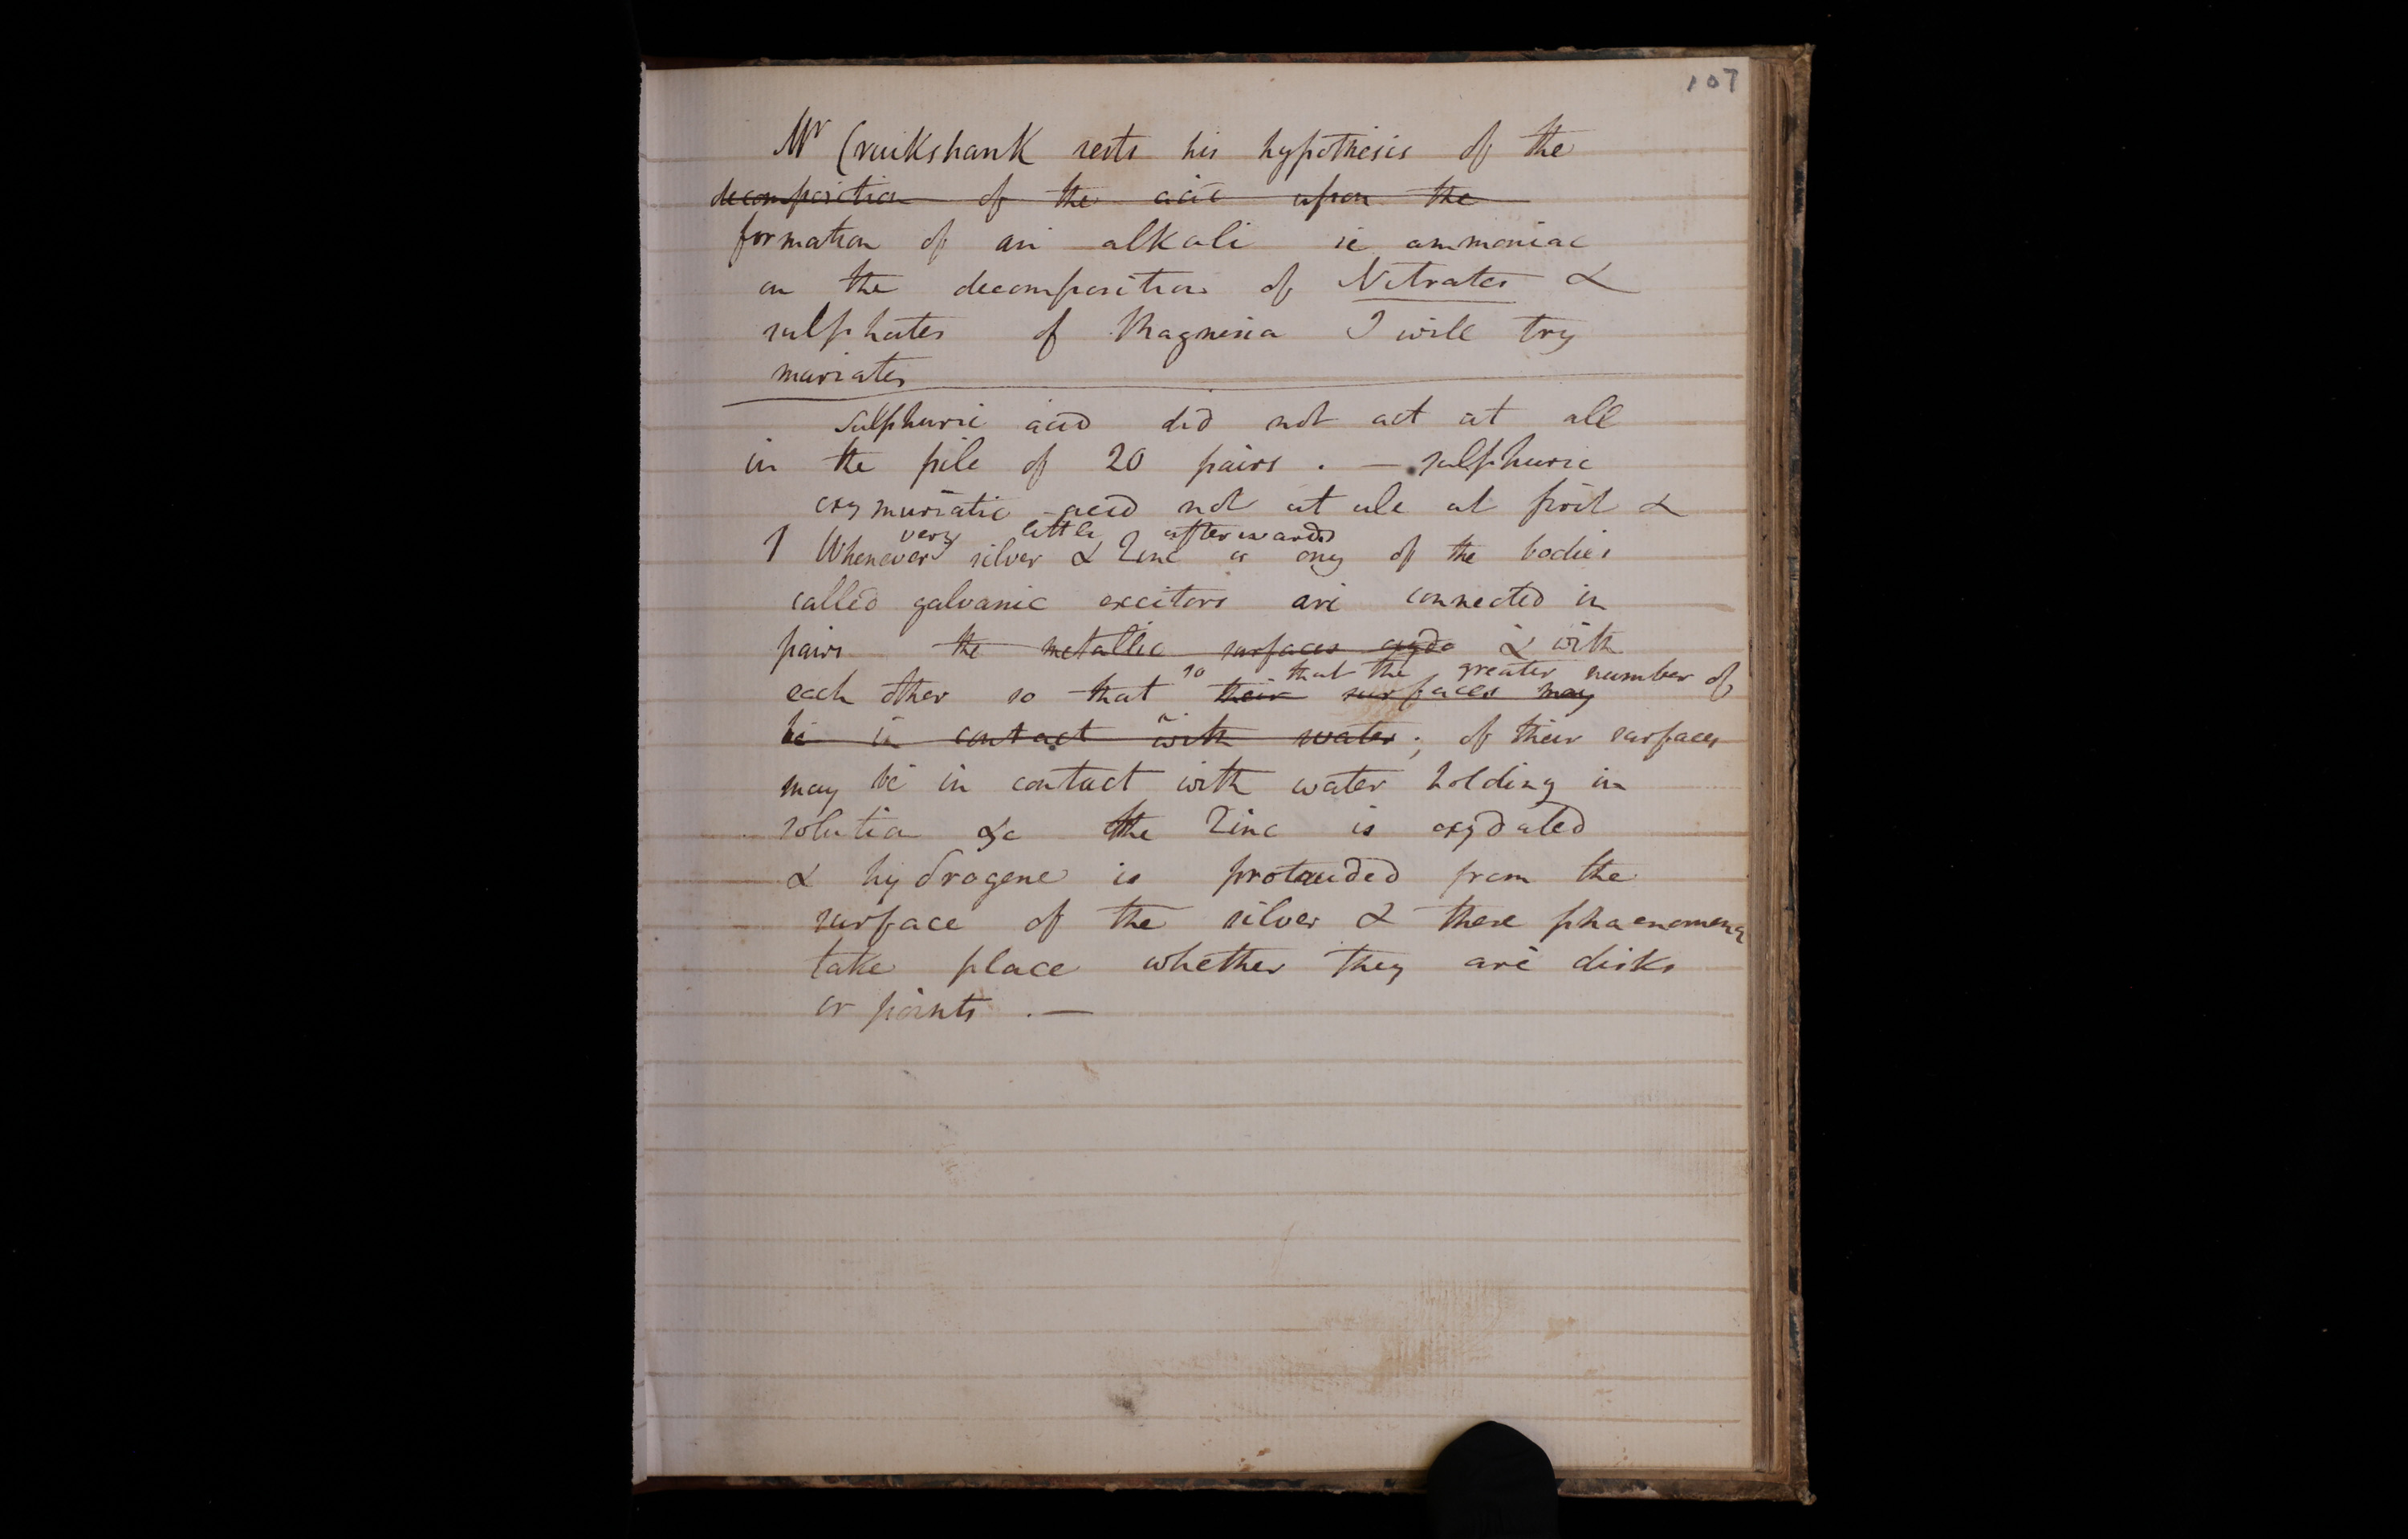 107
Mr Cruikshank rests his hypothesis of the
decomposition of the acid upon the
formation of an alkali ie ammoniac
on the decomposition of Nitrates &
sulphates of Magnesia I will try
muriates
Sulphuric acid did not act at all
in the pile of 20 pairs . — sulphuric
oxymuriatic acid not at all at first &
very little afterwards
1 Whenever silver & Zinc or any of the bodies
called galvanic excitors are connected in
pairs the metallic surfaces oxyda & with
so that the greater number of
each other so that their surfaces may
be in contact with water ; of their surfaces
may be in contact with water holding in
solution &c the Zinc is oxydated
& hydrogene is protruded from the
surface of the silver & these phaenomena
take place whether they are disks
or points . —